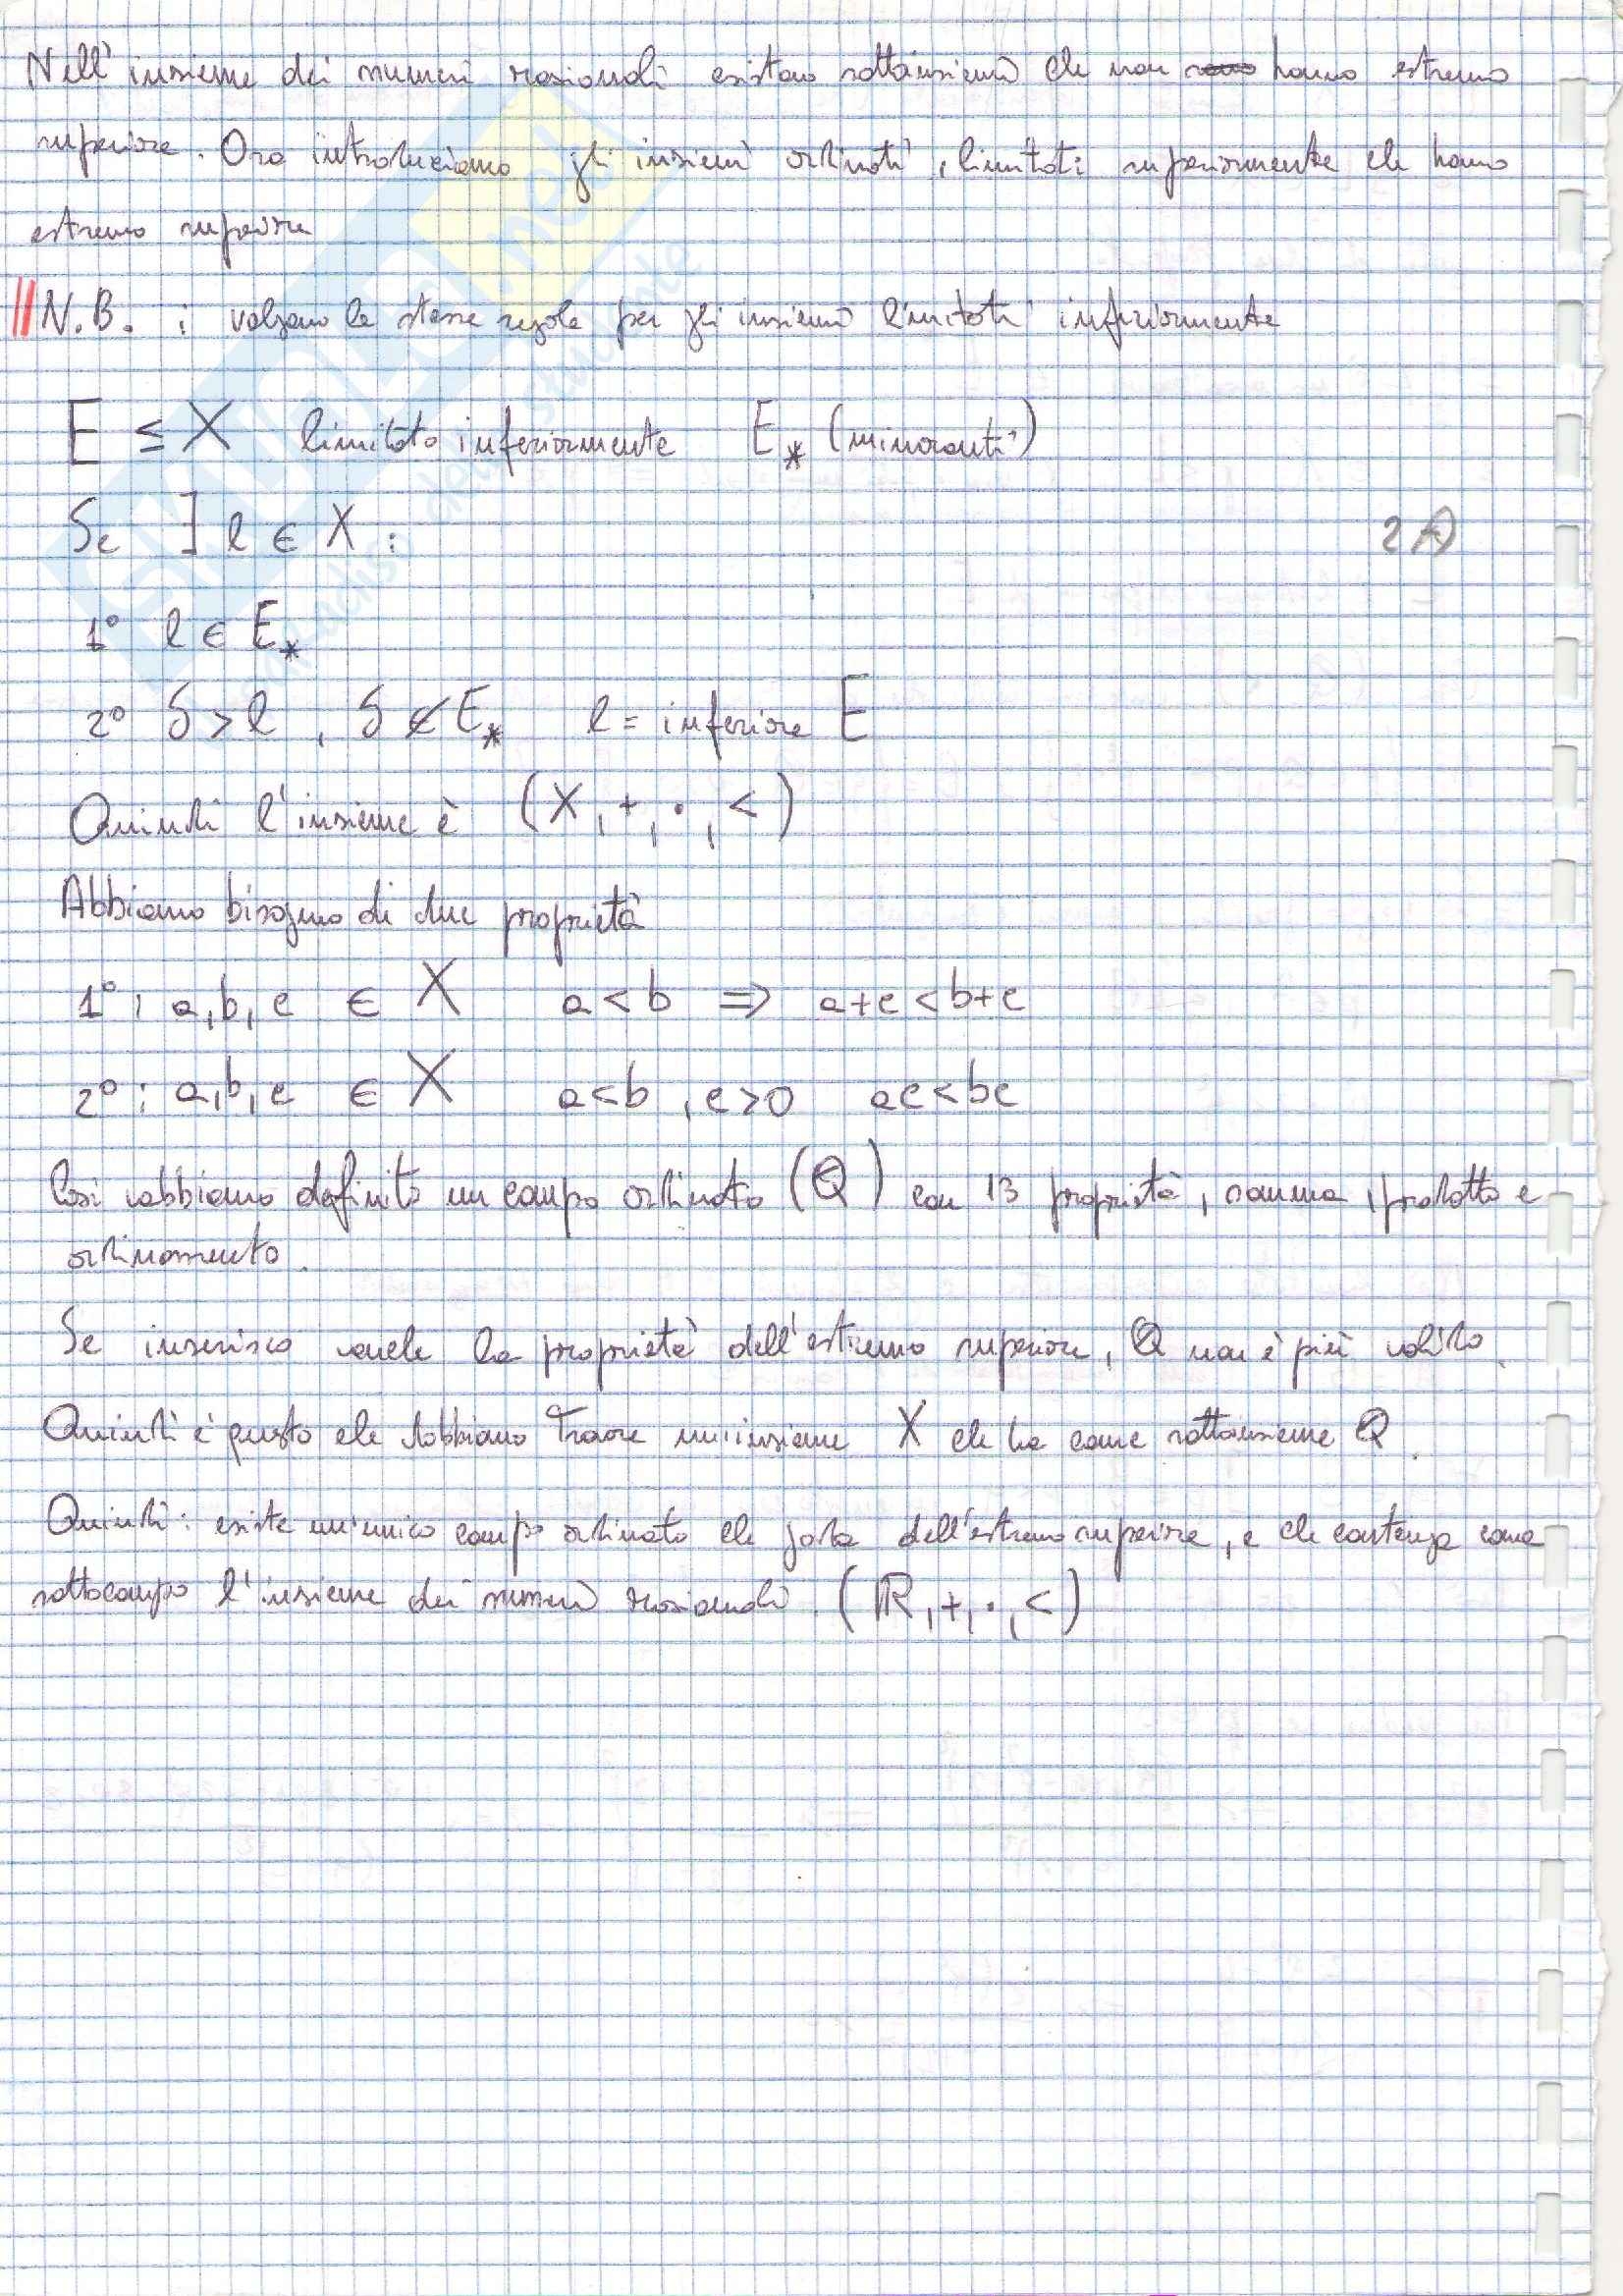 Nell'insieme dei numeri razionali esistono sottoinsiemi che non hanno estremo
superiore. Ora introduciamo gli insiemi ordinati, limitati superiormente che hanno
estremo superiore
N.B. : valgono le stesse regole per gli insiemi limitati inferiormente
E ≤ X limitato inferiormente E* (minoranti)
Se ∃ l ∈ X :
2A
1° l ∈ E*
2° S > l , S ∉ E* l = inferiore E
Quindi l'insieme è (X, +, ·, <)
Abbiamo bisogno di due proprietà
1° : a, b, c ∈ X a < b ⇒ a+c < b+c
2° : a, b, c ∈ X a < b , c > 0 ac < bc
Così abbiamo definito un campo ordinato (Q) con 13 proprietà, somma, prodotto e
ordinamento.
Se inserisco anche la proprietà dell'estremo superiore, Q non è più valido.
Quindi è giusto che dobbiamo trovare un insieme X che ha come sottoinsieme Q.
Quindi: esiste un'unico campo ordinato che goda dell'estremo superiore, e che contenga come
sottocampo l'insieme dei numeri razionali. (R, +, ·, <)